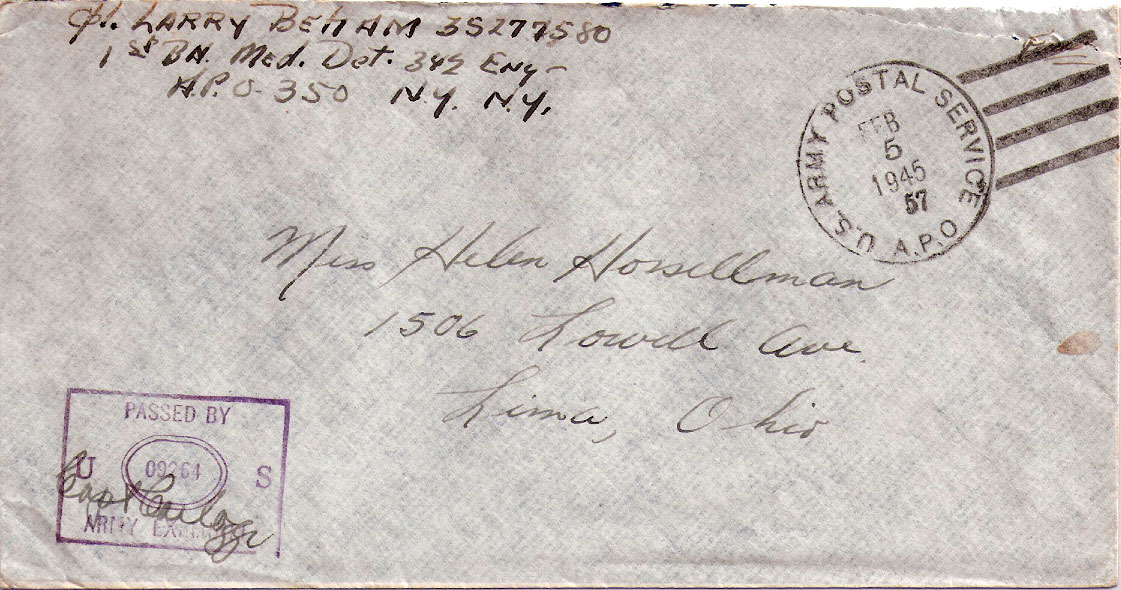 Pvt. LARRY BEHAM 35277580
1st BN. Med. Det. 342 Eng-
A.P.O. 350 N.Y. N.Y.
U.S. ARMY POSTAL SERVICE A.P.O.
FEB
5
1945
57
Miss Helen Hossellman
1506 Lowell Ave.
Lima, Ohio
PASSED BY
U 09264 S
ARMY